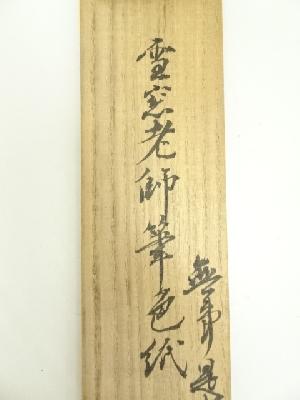 雪窓老師筆色紙
無事是